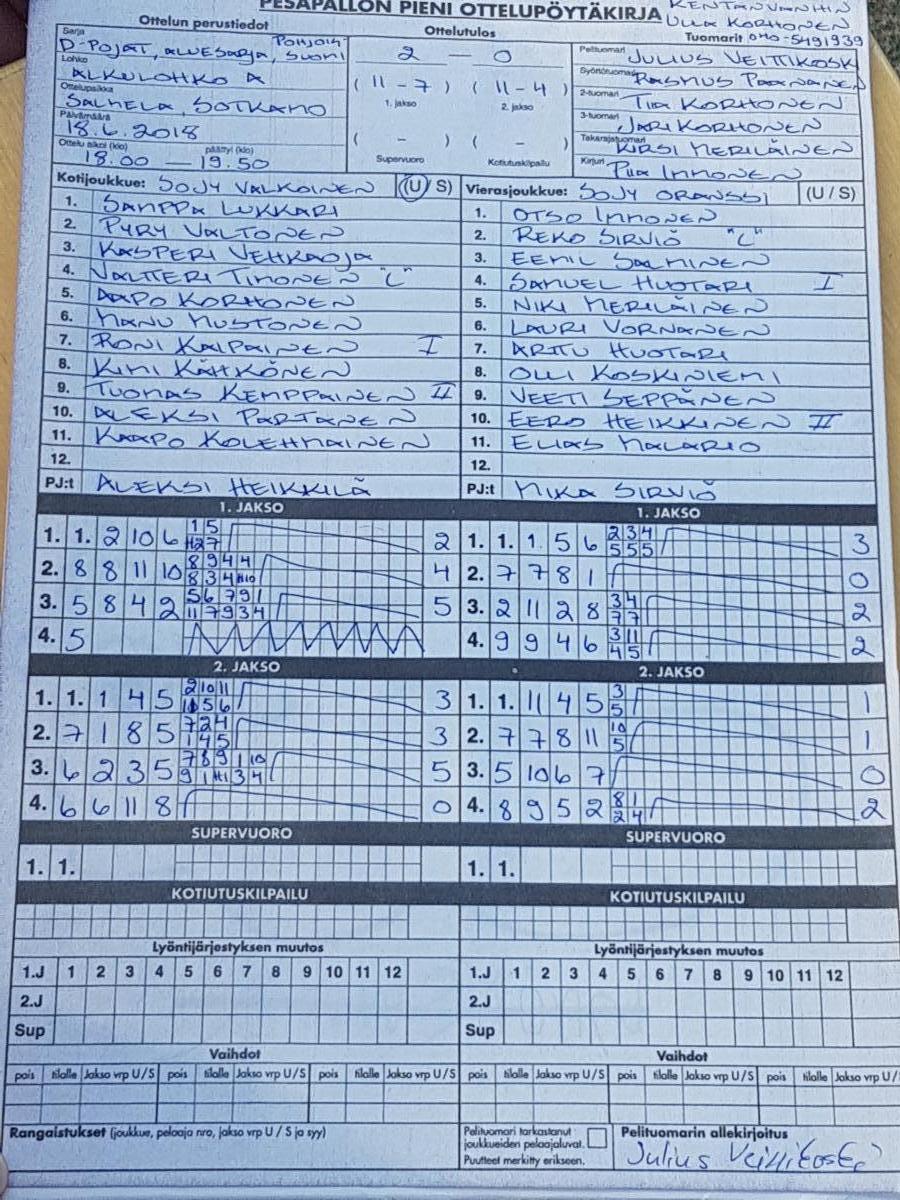 PESÄPALLON PIENI OTTELUPÖYTÄKIRJA
KENTÄNVANHIN
ULLA KORHONEN
040-5491939
Ottelun perustiedot
Sarja
D-POJAT, ALUESARJA, POHJOIS-SUOMI
Lohko
ALKULOHKO A
Ottelupaikka
SALMELA, SOTKAMO
Päivämäärä
18.6.2018
Ottelu alkoi (klo) päättyi (klo)
18.00 — 19.50
Ottelutulos
2 — 0
( 11 - 7 ) ( 11 - 4 )
1. jakso 2. jakso
( - ) ( - )
Supervuoro Kotiutuskilpailu
Tuomarit
Pelituomari JULIUS VEITTIKOSKI
Syöttötuomari RASMUS PAANANEN
2-tuomari TIIA KORHONEN
3-tuomari JARI KORHONEN
Takarajatuomari KIRSI MERILÄINEN
Kirjuri PIIA IMMONEN
Kotijoukkue: SOJY VALKOINEN (U/ S)
1. SAMPPA LUKKARI
2. PYRY VALTONEN
3. KASPERI VEHKAOJA
4. VALTTERI TIMONEN "C"
5. AAPO KORHONEN
6. MANU MUSTONEN
7. RONI KAIPAINEN I
8. KIMI KÄHKÖNEN
9. TUOMAS KEMPPAINEN II
10. ALEKSI PARTANEN
11. KAAPO KOLEHMAINEN
12.
PJ:t ALEKSI HEIKKILÄ
Vierasjoukkue: SOJY ORANSSI (U / S)
1. OTSO IMMONEN
2. REKO SIRVIÖ "C"
3. EEMIL SALMINEN
4. SAMUEL HUOTARI I
5. NIKI MERILÄINEN
6. LAURI VORNANEN
7. ARTTU HUOTARI
8. OLLI KOSKINIEMI
9. VEETI SEPPÄNEN
10. EERO HEIKKINEN II
11. ELIAS MALARIO
12.
PJ:t MIKA SIRVIÖ
1. JAKSO
1. 1. 2 10 6 1 5 2
2. 8 8 11 10 8 9 4 4 4
3. 5 8 4 2 5 6 7 9 1 5
11 7 9 3 4
4. 5
2. JAKSO
1. 1. 1 4 5 2 10 11 3
2. 7 1 8 5 7 2 4 3
1 4 5
3. 6 2 3 5 7 8 9 1 10 5
4. 6 6 11 8 0
SUPERVUORO
1. 1.
KOTIUTUSKILPAILU
1. JAKSO
1. 1. 1 5 6 2 3 4 3
5 5 5
2. 7 7 8 1 0
3. 2 11 2 8 3 4 2
7 7
4. 9 9 4 6 3 11 2
4 5
2. JAKSO
1. 1. 11 4 5 3 1
5
2. 7 7 8 11 10 1
5
3. 5 10 6 7 0
4. 8 9 5 2 8 1 2
2 4
SUPERVUORO
1. 1.
KOTIUTUSKILPAILU
Lyöntijärjestyksen muutos
1.J 1 2 3 4 5 6 7 8 9 10 11 12
2.J
Sup
Lyöntijärjestyksen muutos
1.J 1 2 3 4 5 6 7 8 9 10 11 12
2.J
Sup
Vaihdot
pois tilalle Jakso vrp U/S pois tilalle Jakso vrp U/S pois tilalle Jakso vrp U/S
Vaihdot
pois tilalle Jakso vrp U/S pois tilalle Jakso vrp U/S pois tilalle Jakso vrp U/
Rangaistukset (joukkue, pelaaja nro, jakso vrp U / S ja syy)
Pelituomari tarkastanut
joukkueiden pelaajaluvat.
Puutteet merkitty erikseen.
Pelituomarin allekirjoitus
Julius Veittikoski